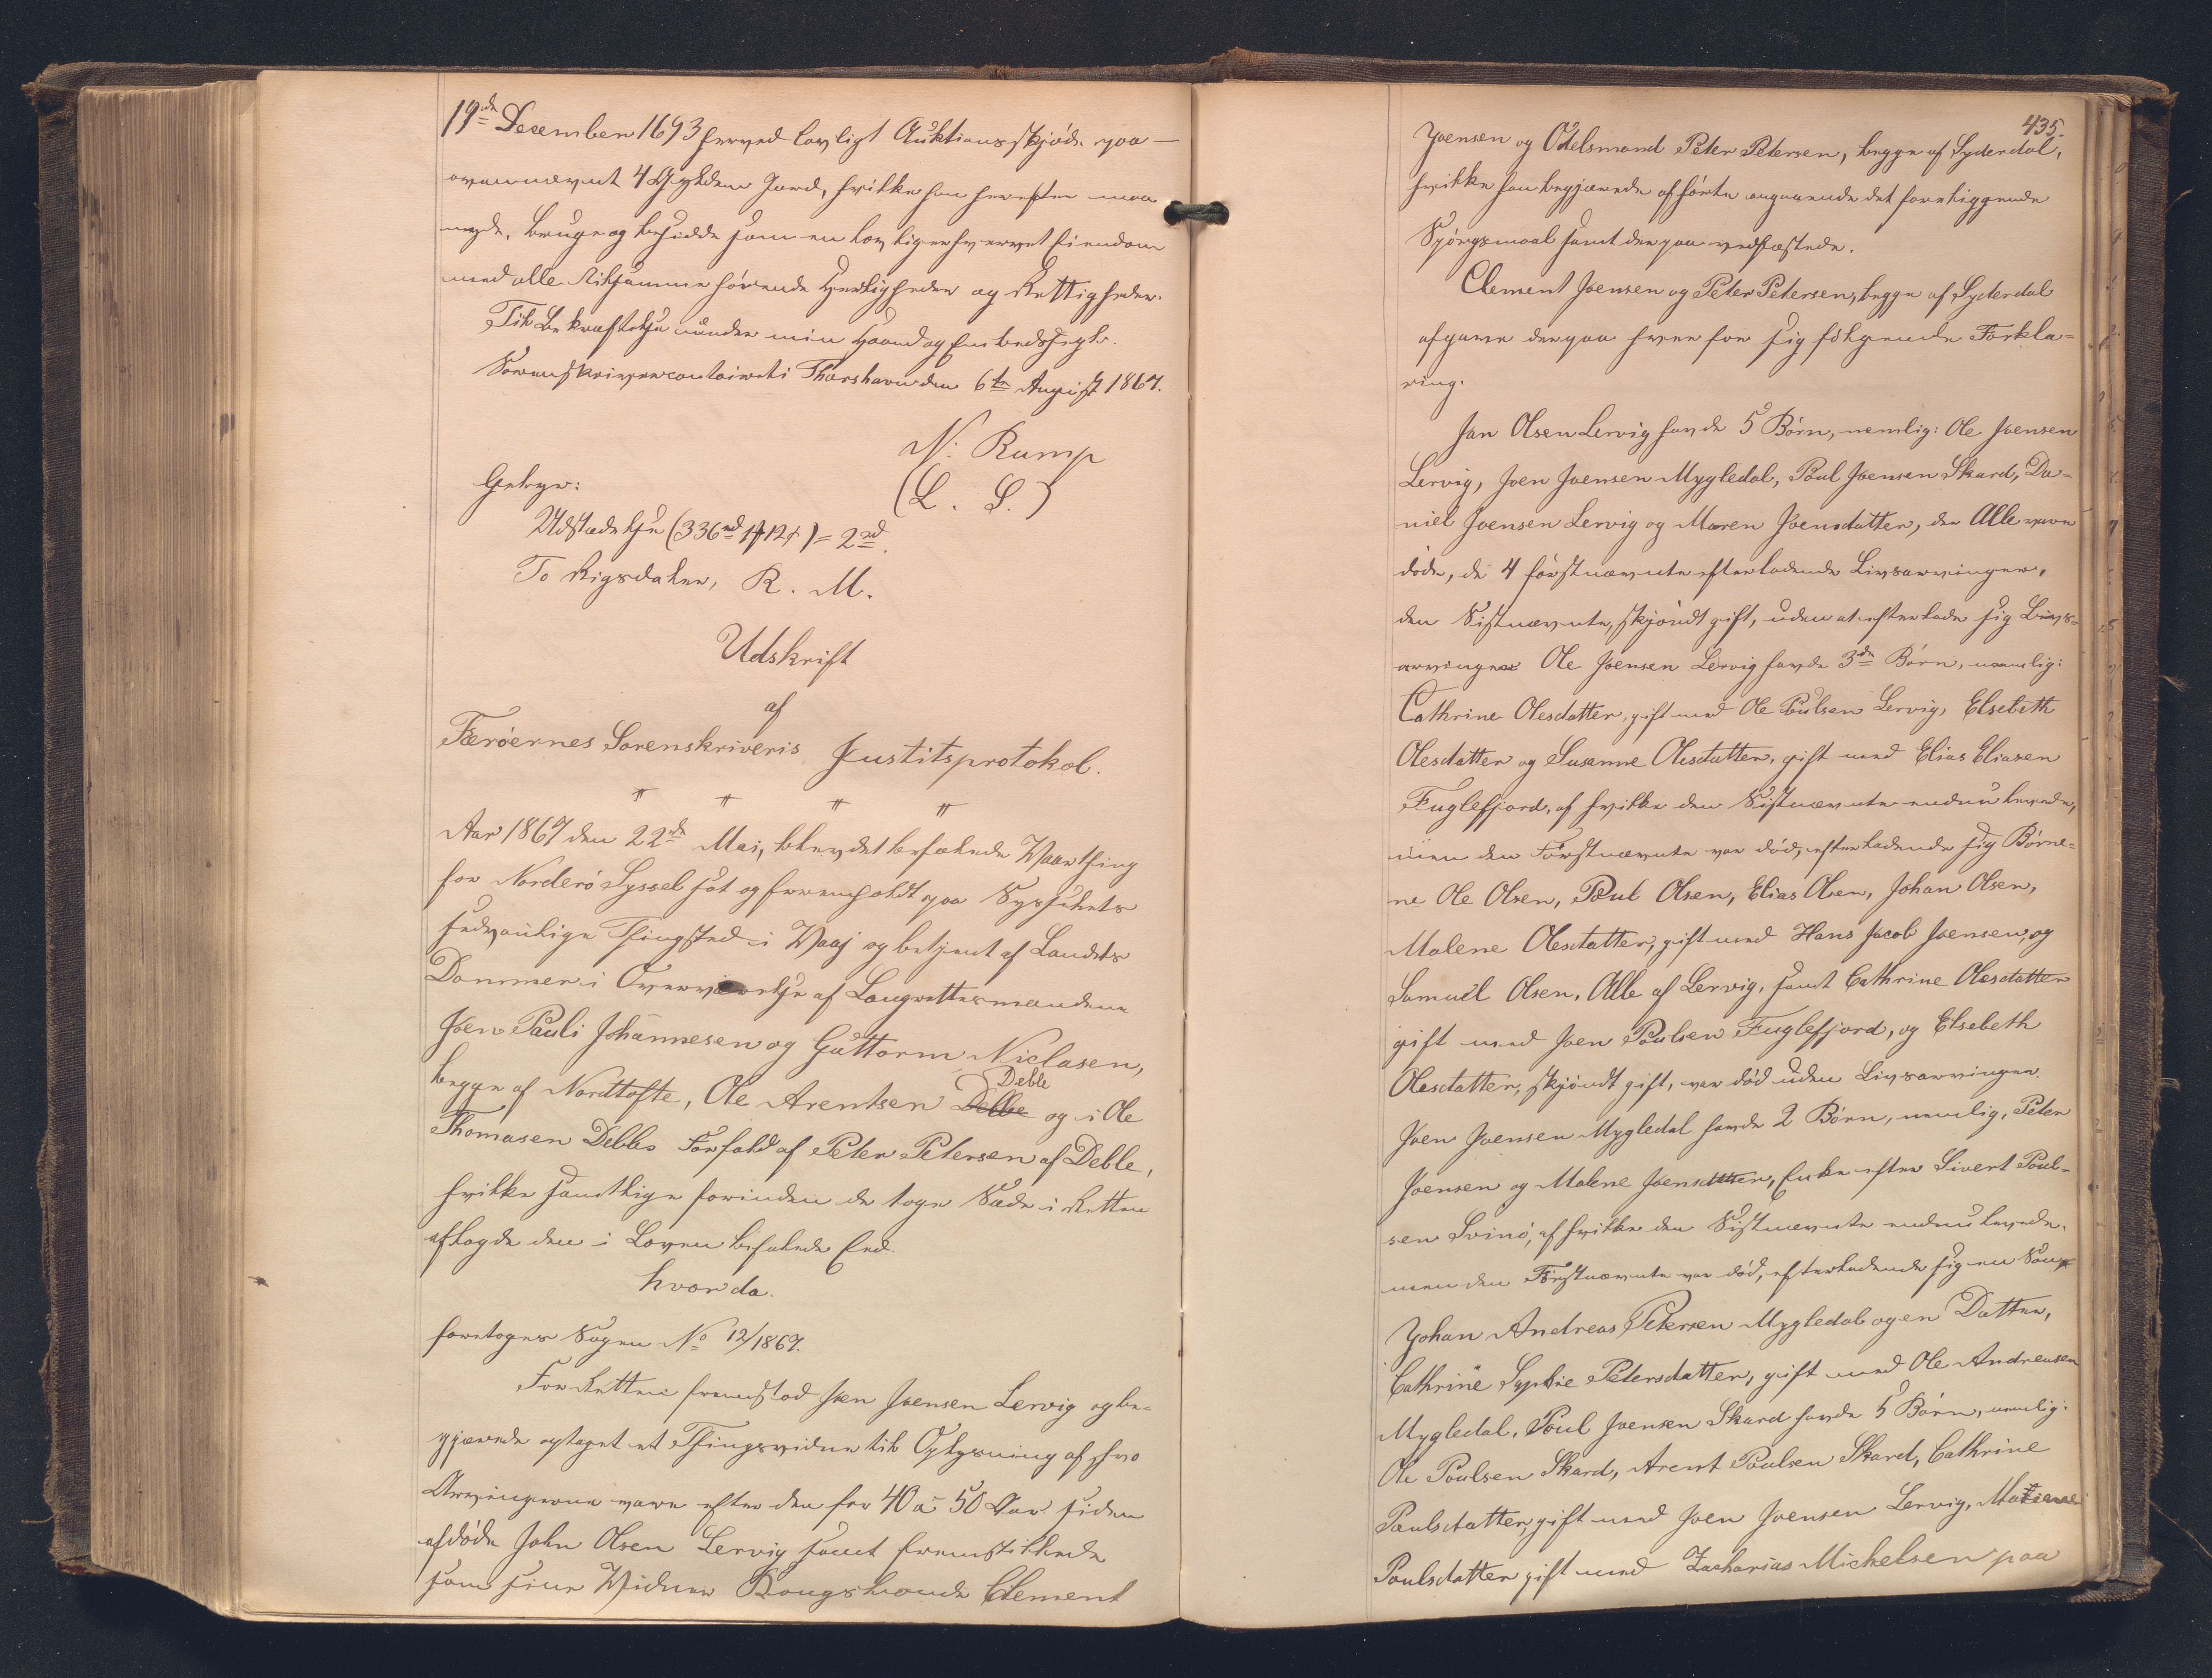 19de December 1693 herved lovligt Auktionsskjöde paa
ovennævnt 4 Gylden Jord, hvilke han herefter maa
nyde, bruge og besidde som en lovlig erhvervet Eiendom
med alle tilhammehörende Herligheder og Rettigheder.
Til Bekræftelse under min Haand og Embedssegl.
Sorenskrivercontoiret i Thorshavn den 6te August 1867.
N: Rump
(L. S.)
Gebyr:
Udstædelse (336rd 1# 12s) = 2rd.
To Rigsdaler, R. M.
Udskrift
af
Færöernes Sorenskriveris Justitsprotokol.
" " " "
Aar 1867 den 22de Mai, blev det befalede Vaarthing
for Norderö Syssel sat og fremholdt paa Sysselets
sedvanlige Thingsted i Vaaj og betjent af Landets
Dommer i Overværelse af Laugrettesmændene
Joen Pauli Johannesen og Guttorm Niclasen,
begge af Nordtofte, Ole Arentsen Deble og i Ole
Thomasen Debles Forfald af Peter Petersen af Deble,
hvilke samtlige forinden de toge Sæde i Retten
aflagde den i Loven befalede Eed.
hvor da.
foretoges Sagen No 12/1867.
For Retten fremstod Joen Joensen Lervig og be-
gjærede optaget et Thingsvidne til Oplysning af hvo
Arvingerne vare efter den for 40 a 50 Aar siden
afdöde John Olsen Lervig samt fremstillede
som sine Vidner Kongsbonde Clement
435.
Joensen og Odelsmand Peter Petersen, begge af Syderdal,
hvilke han begjærede afhörte angaaende det foreliggende
Spörgsmaal samt derpaa vedfæstede.
Clement Joensen og Peter Petersen, begge af Syderdal
afgave derpaa hver for sig fölgende Forkla-
ring.
Jan Olsen Lervig havde 5 Börn, nemlig: Ole Joensen
Lervig, Joen Joensen Mygledal, Poul Joensen Skard, Da-
niel Joensen Lervig og Maren Joensdatter, der Alle vare
döde, de 4 förstnævnte efterladende Livsarvinger,
den Sistnævnte, skjöndt gift, uden at efterlade sig Livs-
arvinger Ole Joensen Lervig havde 3de Börn, nemlig:
Cathrine Olesdatter, gift med Ole Poulsen Lervig, Elsebeth
Olesdatter og Susanne Olesdatter, gift med Elias Eliasen
Fuglefjord, af hvilke den Sistnævnte endnu levede,
men den Förstnævnte var död, efterladende sig Börne-
ne Ole Olsen, Poul Olsen, Elias Olsen, Johan Olsen,
Malene Olesdatter, gift med Hans Jacob Joensen, og
Samuel Olsen, Alle af Lervig, samt Cathrine Olesdatter
gift med Joen Poulsen Fuglefjord, og Elsebeth
Olesdatter, skjöndt gift, var död uden Livsarvinger.
Joen Joensen Mygledal havde 2 Börn, nemlig, Peter
Joensen og Malene Joensdatter, Enke efter Sivert Poul-
sen Svinö, af hvilke den Sistnævnte endnu levede.
men den Förstnævnte var död, efterladende sig en Sön
Johan Andreas Petersen Mygledal og en Datter,
Cathrine Sophie Petersdatter, gift med Ole Andreasen
Mygledal, Poul Joensen Skard havde 5 Börn, nemlig:
Ole Poulsen Skard, Arent Poulsen Skard, Cathrine
Poulsdatter, gift med Joen Joensen Lervig,
Poulsdatter gift med Zacharias Michelsen paa